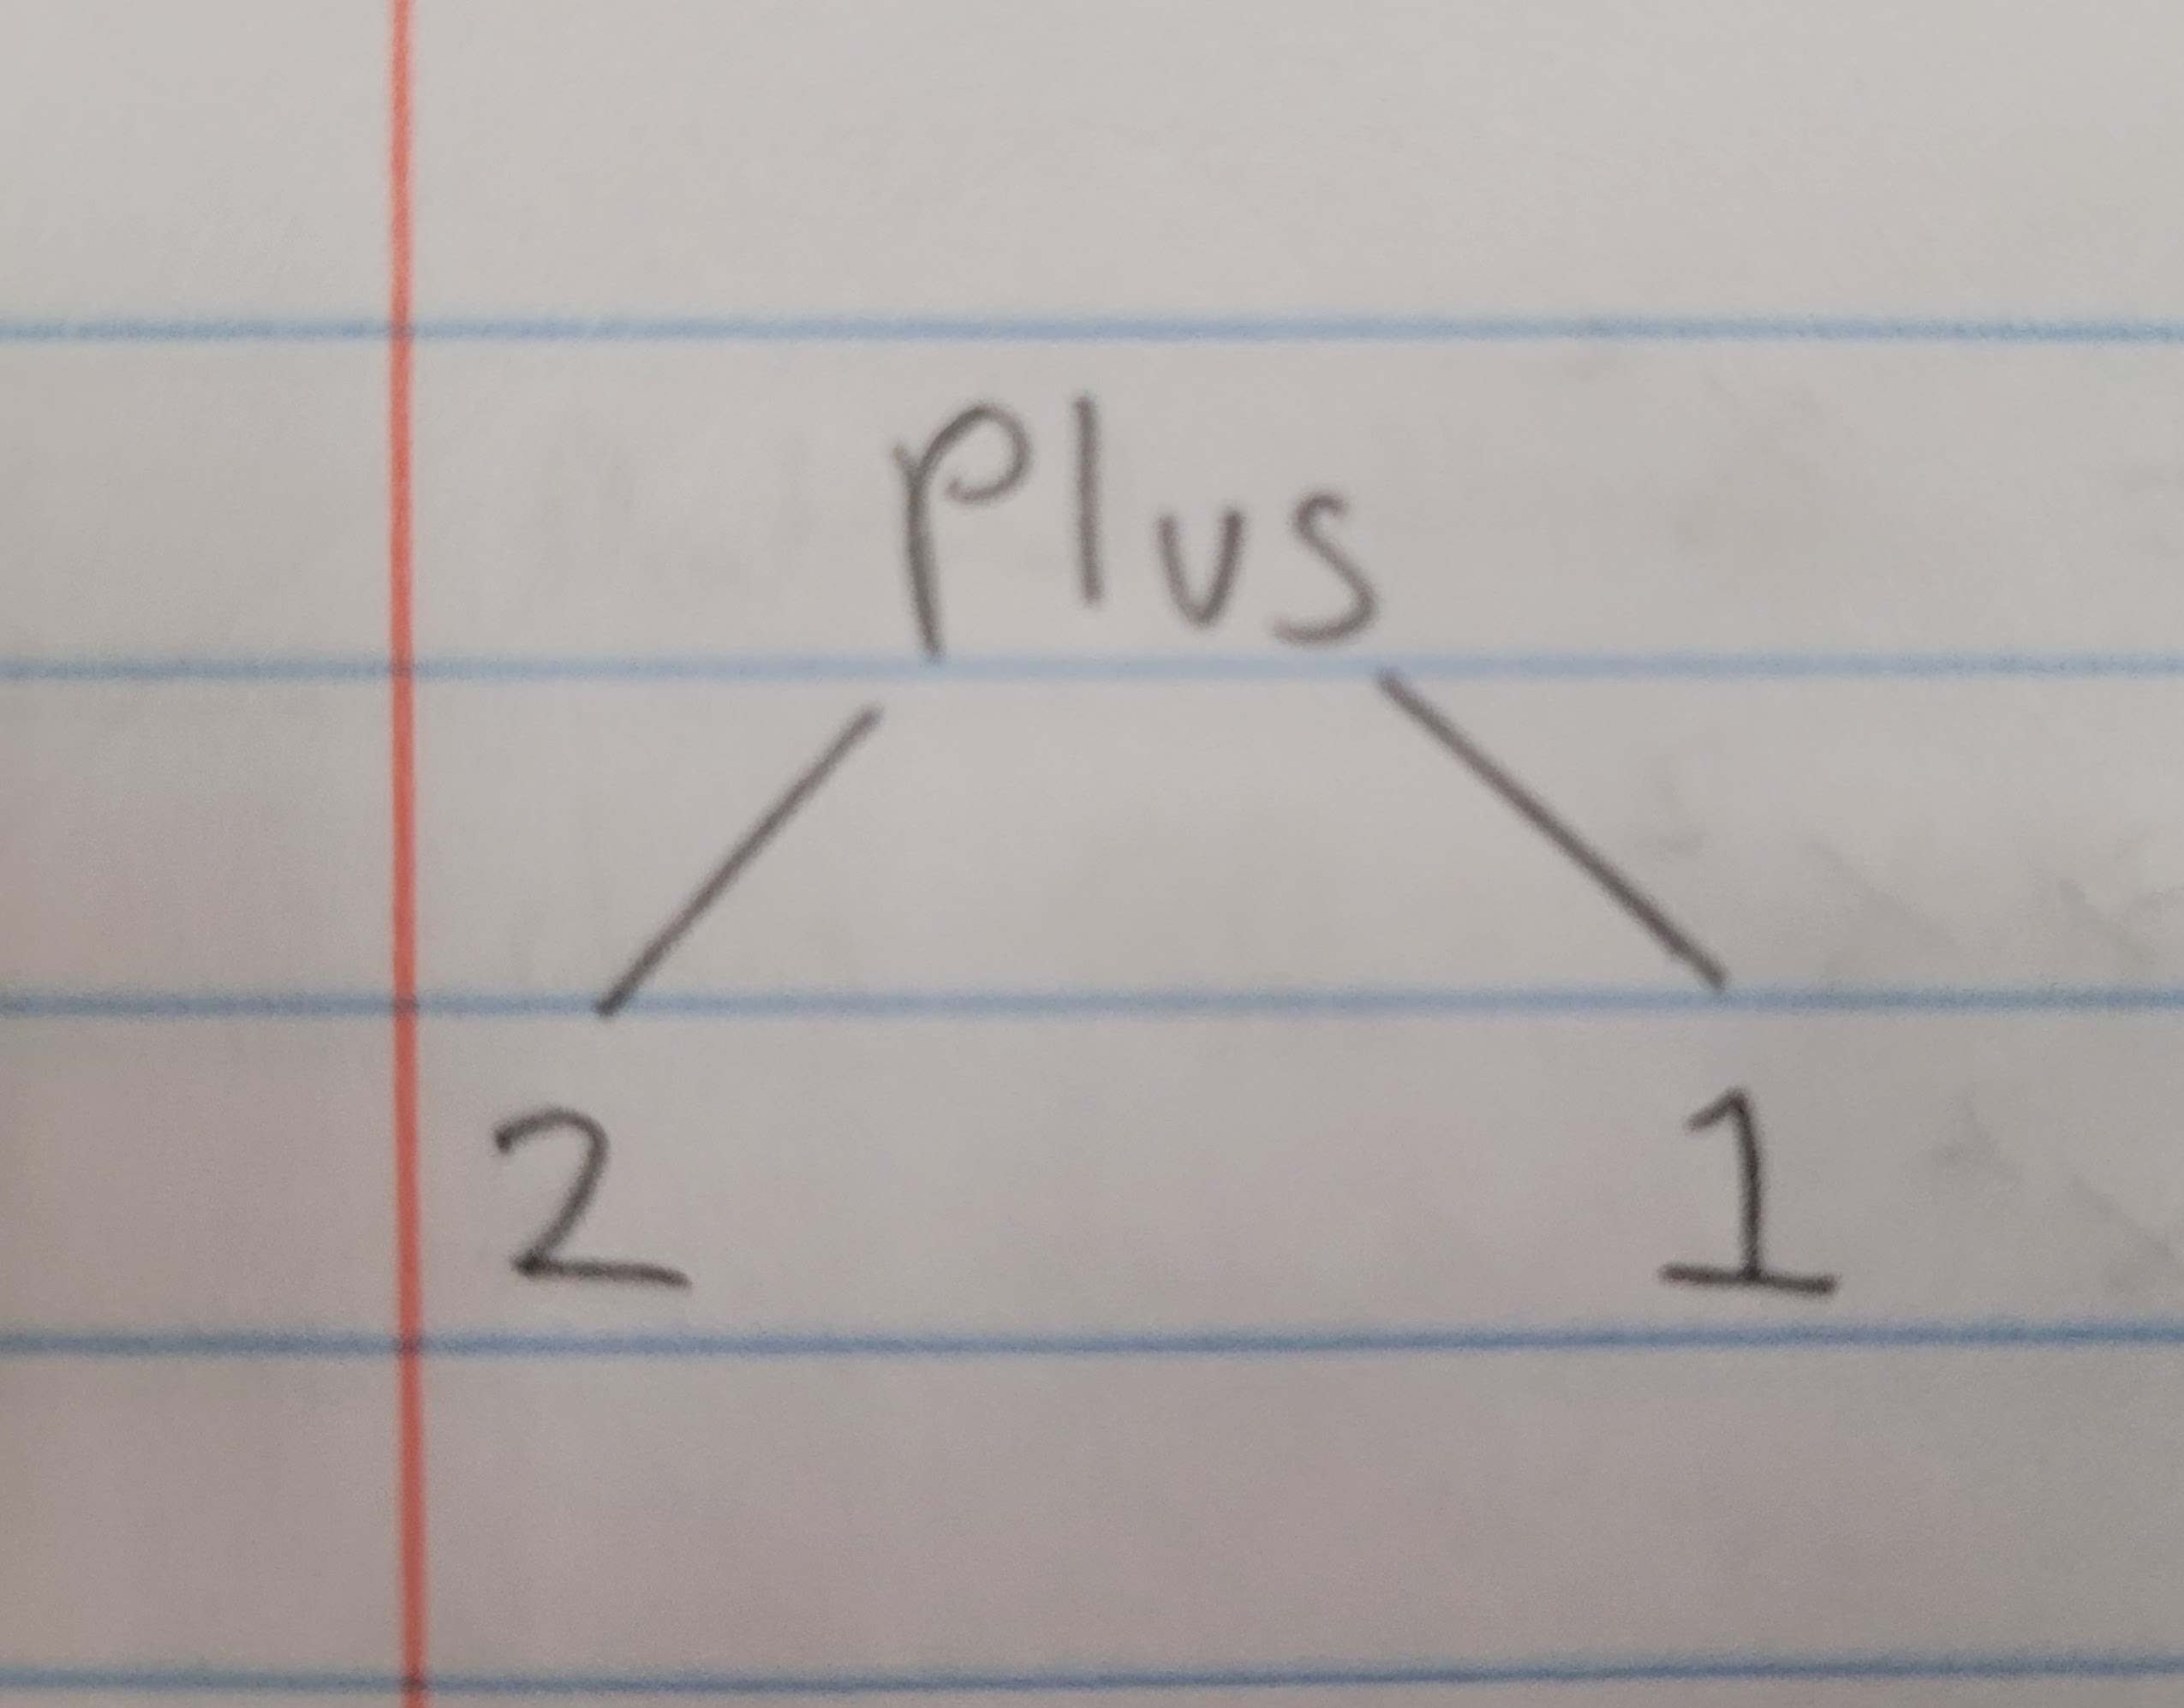 Plus
2 1